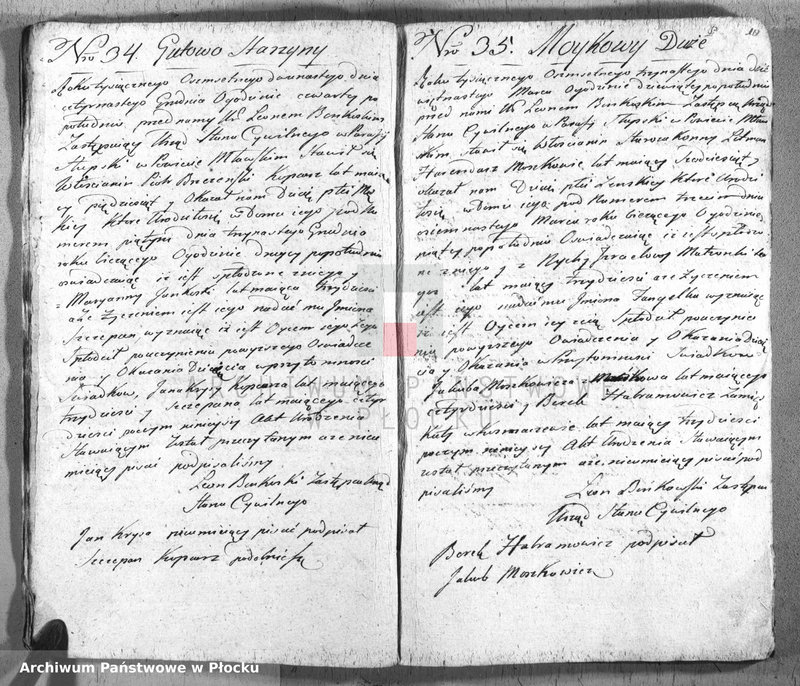 Nro 34. Gutowo Starzyny
Roku tysiącznego Osmsetnego dwunastego dnia
cztyrnastego Grudnia Ogodzinie czwartey po
południu przed namy Ur. Leonem Bońkoskim
Zastępuiący Urząd Stanu Cywilnego w Parafy
Słupski w Powiecie Mławskim Stawił się
Włościanin Piotr kuparz lat maią
cy pięcdziesiąt y Okazał nam Dziecię płci Mę
skiey które Urodziło się w Domu iego pod Nu
merem piątym dnia trzynastego Grudnia
roku bieżącego Ogodzinie drugiey popołudniu
oswiadczaiąc iż iest spłodzone zniego y
z Maryanny Jankoski lat maiąca trzydzieści
aże Życzeniem iest iego nadać mu Jmiona
Szczepan wyznaiąc iż iest Oycem iego Jego
Spłodził pouczynieniu powyszego Oswiadcze
nia y Okazania Dziecięcia wprzytomnosci
Swiadkow, Jana Krysy kuparza lat maiącego
trzydzieści y Szczepana lat maiącego cztyr
dzieści poczym ninieyszy Akt Urodzenia
Stawaiącym został przeczytanym aże nieu
mieiący pisać podpisaliśmy
Leon Bońkoski Zastępca Urząd
Stana Cywilnego
Jan Krysa nieumieiący pisać podpisał
Szczepan Kuparz
Nro 35. Moykowy Duże
Roku tysiącznego Osmsetnego trzynastego dnia dzie
więtnastego Marca Ogodzinie dziewiątey popołudniu
przed nami Ur. Leonem Bonkoskim Zastępcą Urzędu
Stanu Cywilnego w Parafy Słupski w Powiecie Mław
skim stawił się Włościanin Starozakonny
Harendarz Moszkowic lat maiący y
okazał nam Dziecię płci Zenskiey które Urodzi
ło się w Domu iego pod Numerem trzecim dnia
osiemnastego Marca roku bieżącego Ogodzinie
piątey popołudniu Oswiadczaiąc iż iest spłodzo
ne zniego y z Ryfki Jzraelowy Małzonki ie
go lat maiący trzydzieści aże życzeniem
iest iego nadać mu Jmiona wyznaiąc
iż iest Oycem iey y ią Spłodził poucznie
niu powyszego Oswiadczenia y Okazania Dzieci
cia y Okazania w Przytomnosci Swiadkow
Jakuba Moszkowicza lat maiącego
cztyrdziesci y Berek Habramowicz
lat maiący trzydzieści
poczym ninieyszy Akt Urodzenia Stawaiącym
został przeczytanym aże nieumieiący pisać pod
pisaliśmy
Leon Bońkowski Zastępca
Urząd Stanu Cywilnego
Berek Habramowicz podpisał
Jakub Moszkowicz
ARCHIWUM PAŃSTWOWE
W PŁOCKU
Archiwum Państwowe w Płocku